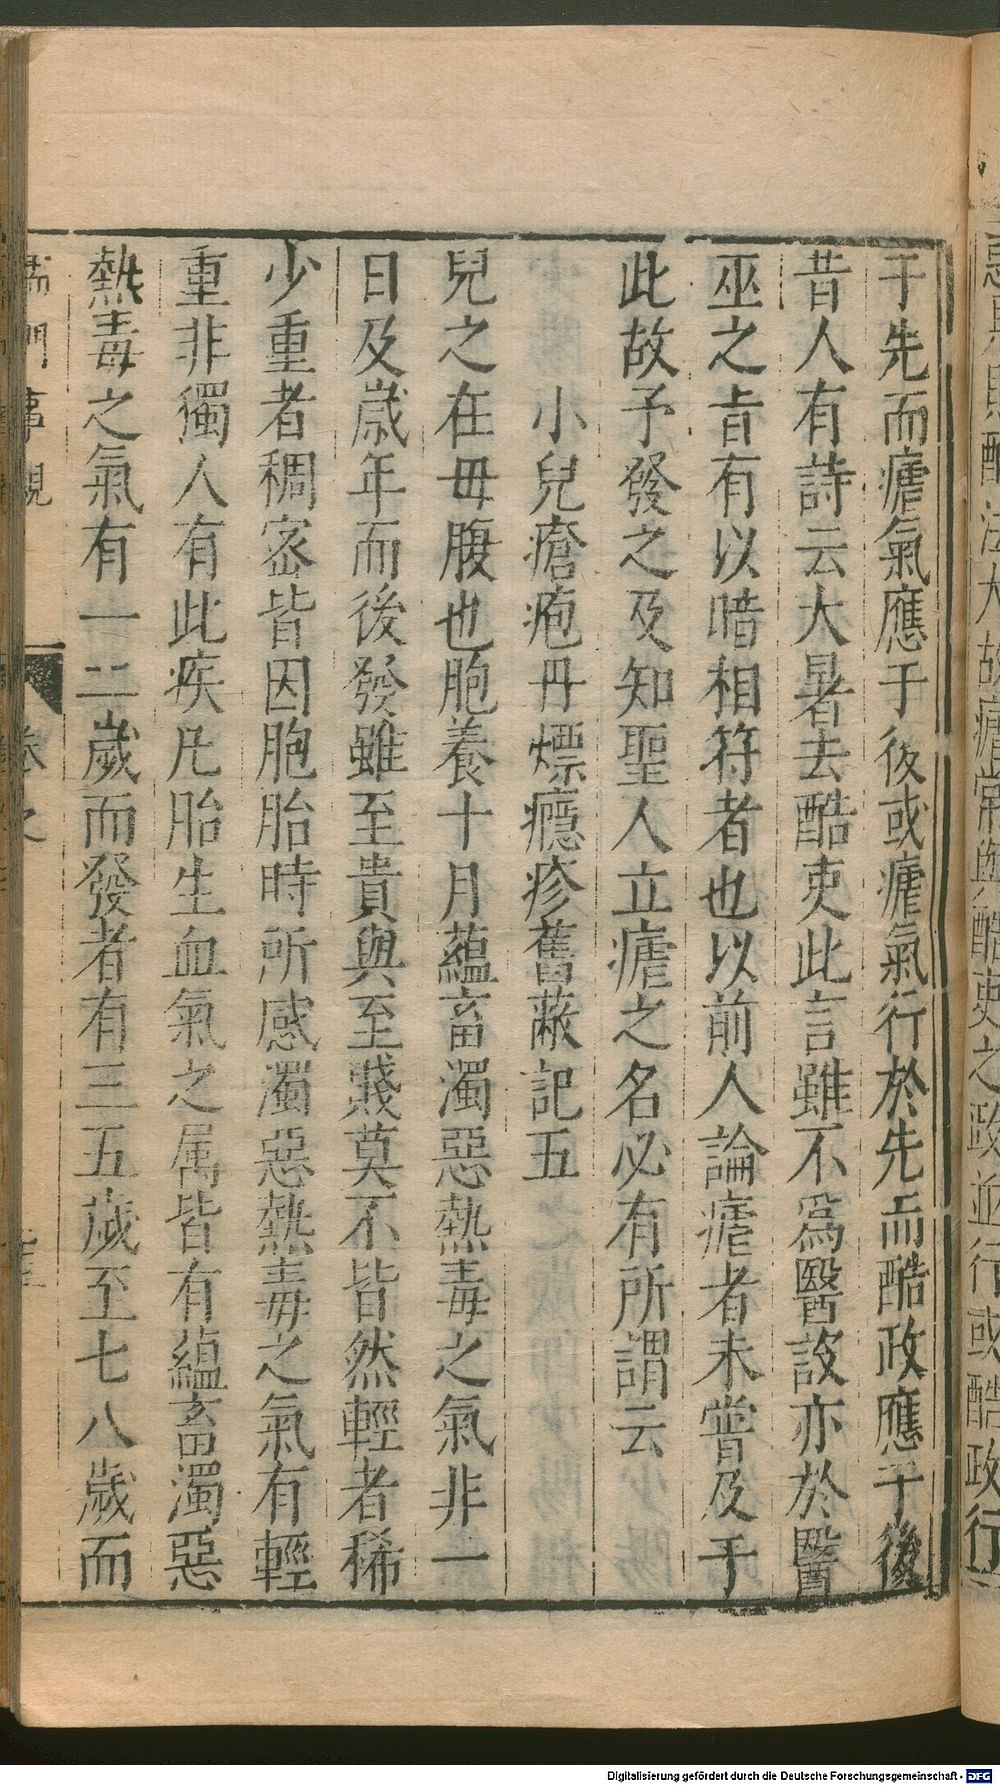 于先而瘧氣應于後或瘧氣行於先而酷政應于後
昔人有詩云大暑去酷吏此言雖不爲醫設亦於醫
巫之旨有以暗相符者也以前人論瘧者未嘗及于
此故予發之及知聖人立瘧之名必有所謂云
小兒瘡疱丹熛癮疹舊蔽記五
兒之在母腹也胞養十月蘊畜濁惡熱毒之氣非一
日及歲年而後發雖至貴與至賤莫不皆然輕者稀
少重者稠密皆因胞胎時所感濁惡熱毒之氣有輕
重非獨人有此疾凡胎生血氣之属皆有蘊畜濁惡
熱毒之氣有一二歲而發者有三五歲至七八歲而
門事親
卷之
Digitalisierung gefördert durch die Deutsche Forschungsgemeinschaft - DFG